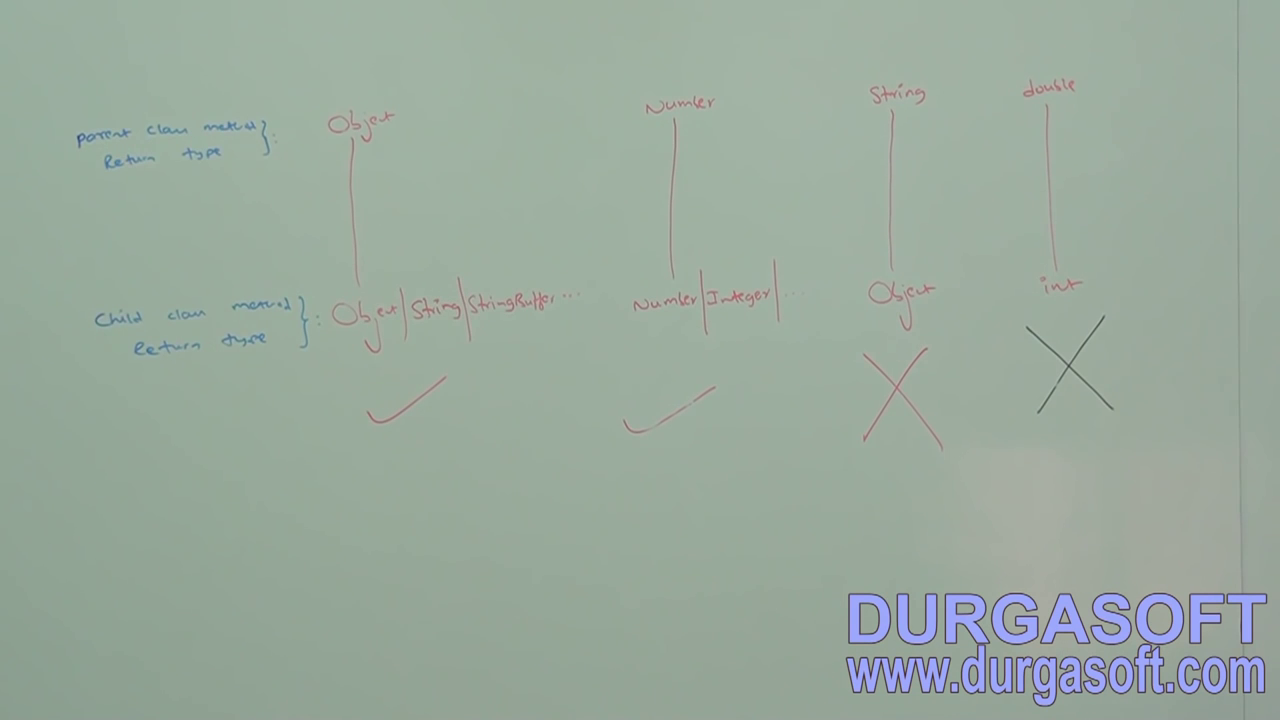 Parent class method } :
Return type
Object
Number
String
double
Child class method } :
Return type
Object | String | StringBuffer ...
Number | Integer | ...
Object
int
DURGASOFT
www.durgasoft.com